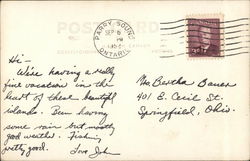 PARRY SOUND
SEP 6
PM
195
ONTARIO
POST CARD
Hi -
We're having a really
fine vacation in the
heart of these beautiful
islands. Been having
some rain but mostly
good weather. Fishin
pretty good.
Love John
Mrs. Bertha Bauer
401 E. Cecil St.
Springfield, Ohio.